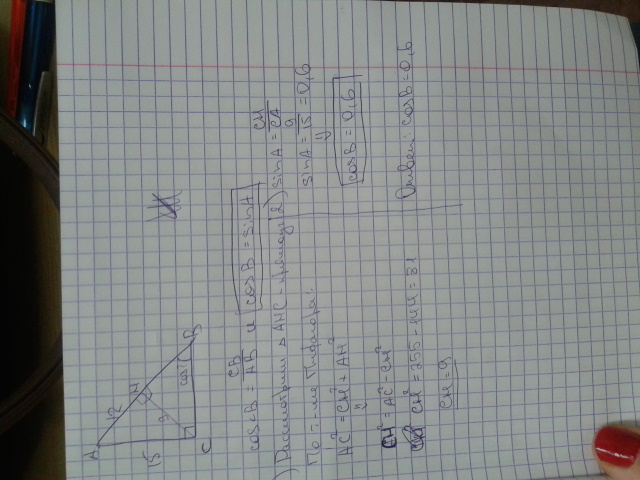 A
12
H
15
9
C
cos?
B
cosB = CB/AB и cosB = sinA
1) Рассмотрим △ AHC - прямоуг.
По т-ме Пифагора:
AC² = CH² + AH²
CH² = AC² - CH²
CH² = 255 - 144 = 81
CH = 9
2) sinA = CH/CA
sinA = 9/15 = 0,6
cosB = 0,6
Ответ: cosB = 0,6